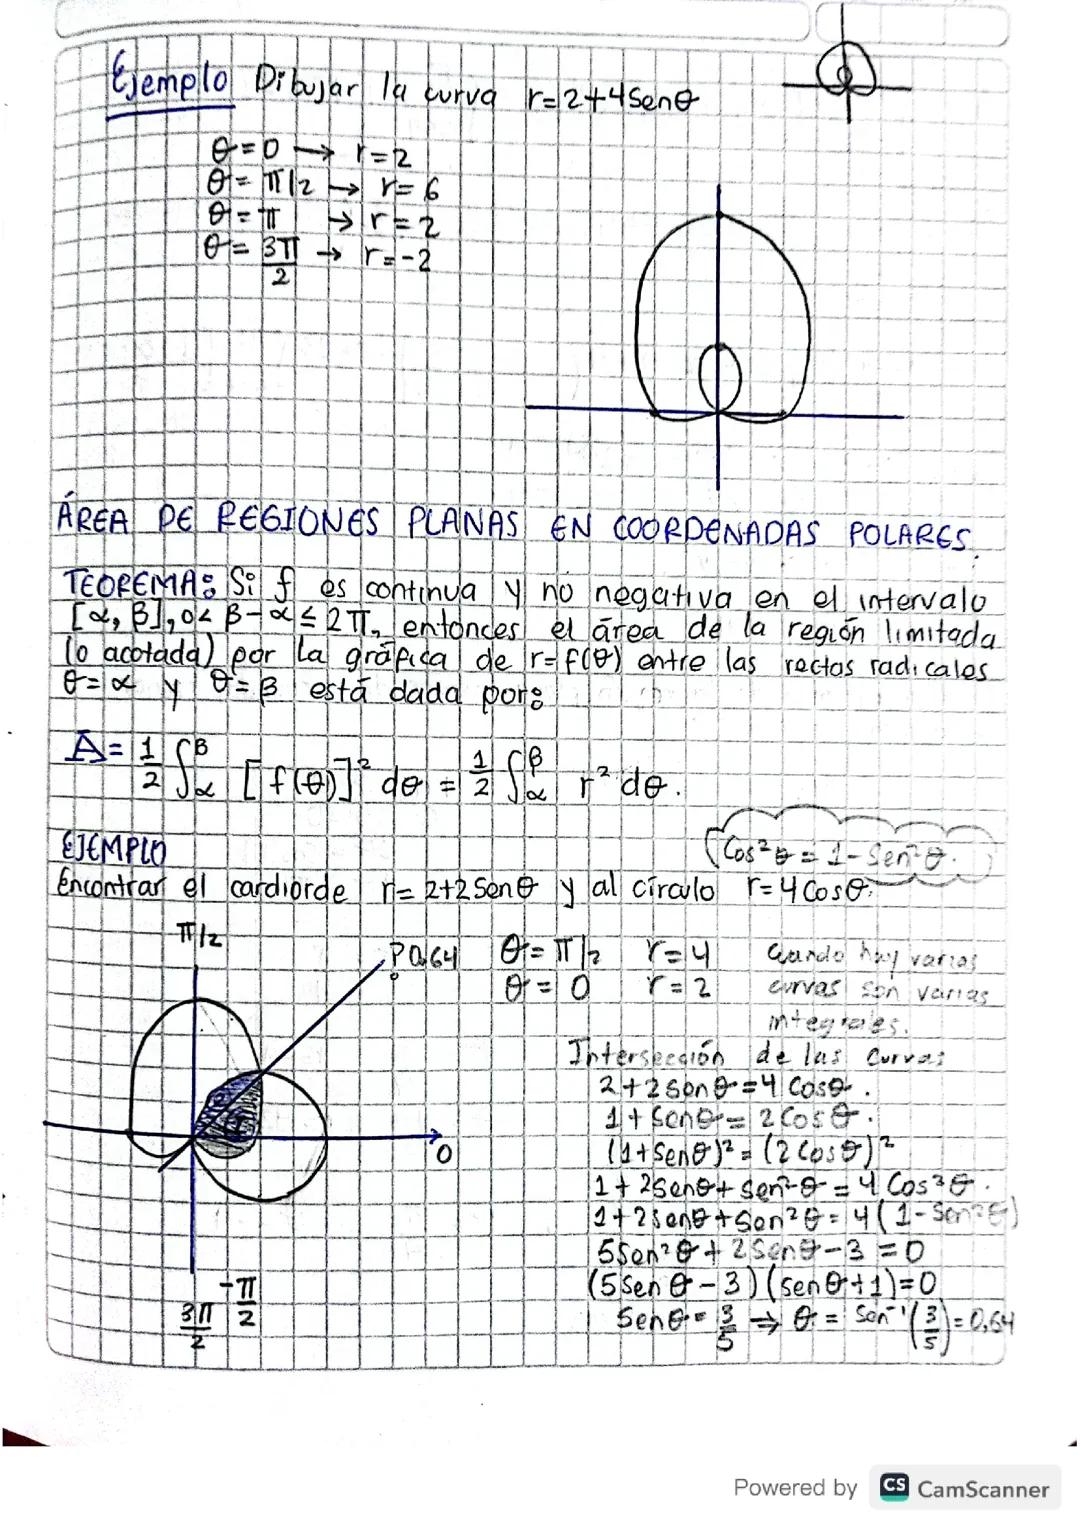 Ejemplo Dibujar la curva r=2+4Senθ
θ=0 → r=2
θ=π/2 → r=6
θ=π → r=2
θ=3π/2 → r=-2
ÁREA DE REGIONES PLANAS EN COORDENADAS POLARES.
TEOREMA: Si f es continua y no negativa en el intervalo
[α, β], 0< β-α ≤ 2π, entonces el área de la región limitada
(o acotada) por la gráfica de r=f(θ) entre las rectas radicales
θ=α y θ=β está dada por:
A= 1/2 ∫α^β [f(θ)]² dθ = 1/2 ∫α^β r² dθ.
EJEMPLO
Cos²θ = 1-Sen²θ.
Encontrar el cardiorde r=2+2Senθ y al círculo r=4Cosθ.
π/2
? 0,64
θ=π/2 r=4
θ=0 r=2
Cuando hay varias
curvas son varias
integrales.
Intersección de las curvas
2+2senθ=4Cosθ.
1+Senθ=2Cosθ.
(1+Senθ)²=(2Cosθ)²
1+2Senθ+Sen²θ=4Cos²θ.
1+2senθ+Sen²θ=4(1-Sen²θ)
5Sen²θ+2Senθ-3=0
(5Senθ-3)(Senθ+1)=0
Senθ=3/5 ⇒ θ=Sen⁻¹(3/5)=0,64
0
-π/2
3π/2
Powered by CS CamScanner